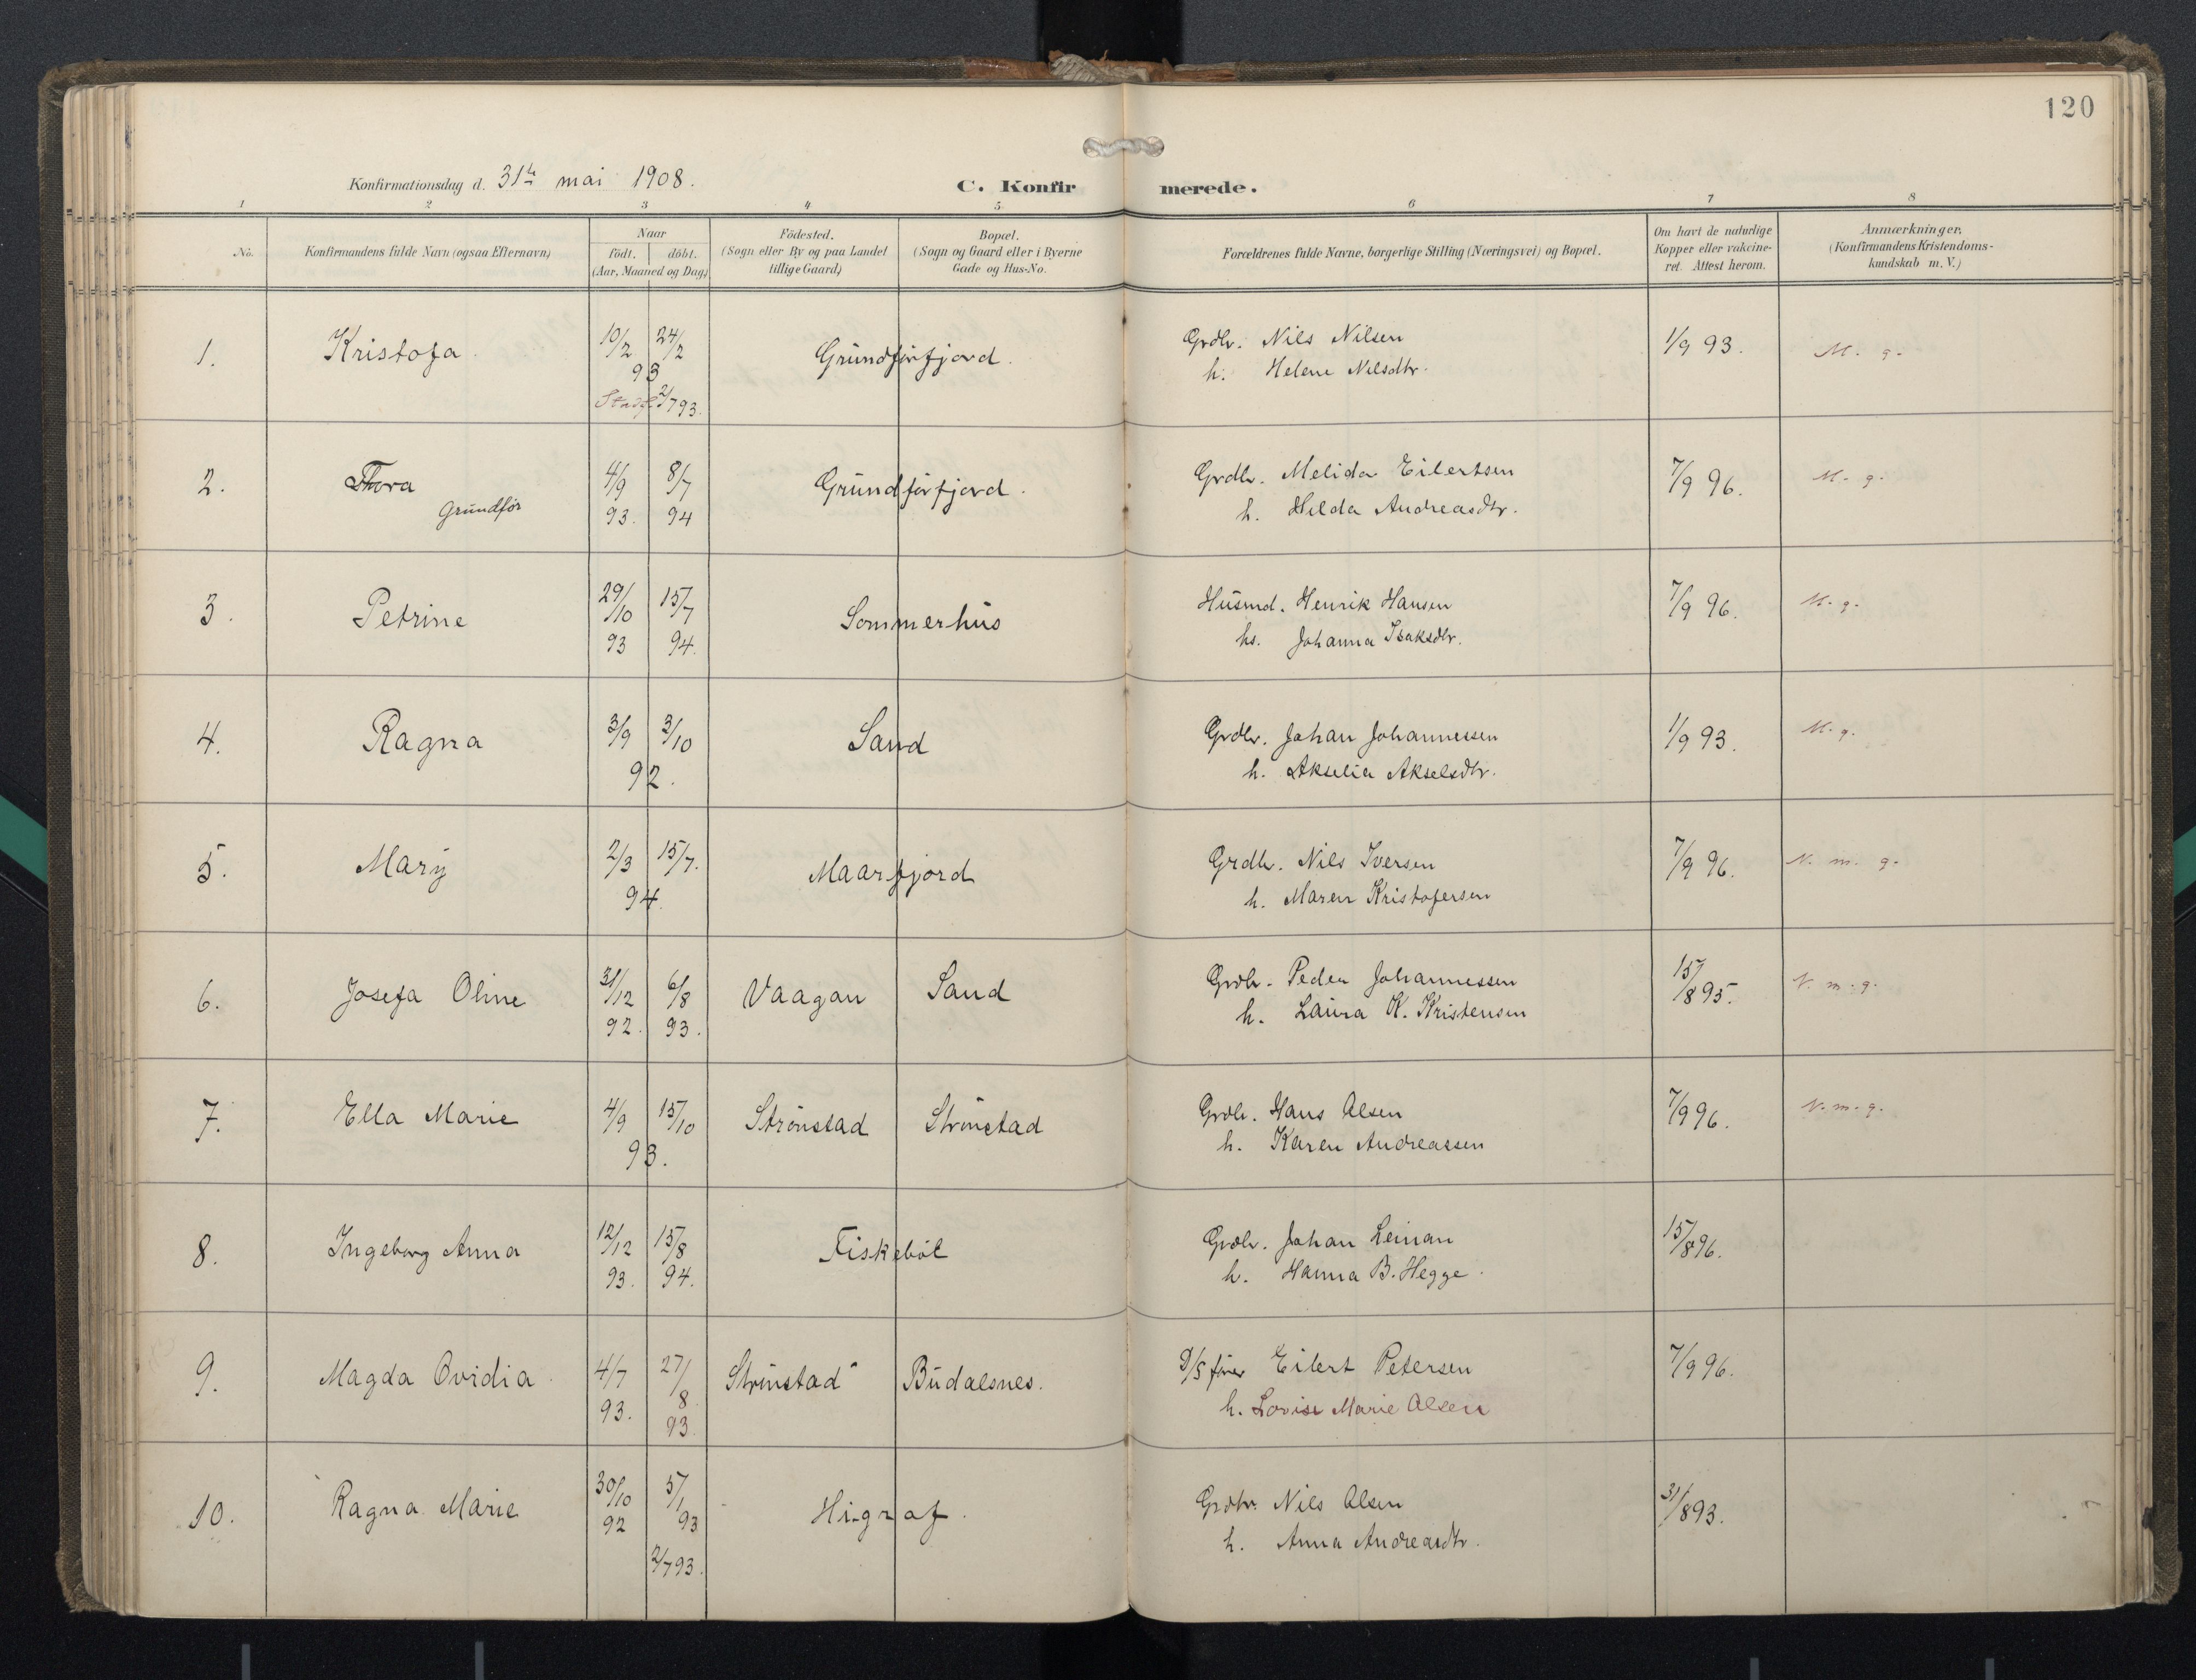 120
Konfirmationsdag d. 31te mai 1908.
C. Konfirmerede.
1 2 3 4 5 6 7 8
No.
Konfirmandens fulde Navn (ogsaa Efternavn)
Naar
født. døbt.
(Aar, Maaned og Dag.)
Fødested.
(Sogn eller By og paa Landet
tillige Gaard)
Bopæl.
(Sogn og Gaard eller i Byerne
Gade og Hus-No.
Forældrenes fulde Navne, borgerlige Stilling (Næringsvei) og Bopæl.
Om havt de naturlige
Kopper eller vakcine-
ret. Attest herom.
Anmærkninger,
(Konfirmandens Kristendoms-
kundskab m. V.)
1. Kristofa. 10/2 24/2 Grundførfjord. Grdbr. Nils Nilsen 1/9 93. M. g.
93 h. Helene Nilsdtr.
Stadf. 2/7 93.
2. Thora 4/9 8/7 Grundførfjord. Grdbr. Melida Eilertsen 7/9 96. M. g.
Grundfør 93. 94 h. Hilda Andreasdtr.
3. Petrine 29/10 15/7 Sommerhus Husmd. Henrik Hansen 7/9 96. M. g.
93 94. hs. Johanna Isaksdtr.
4. Ragna 3/9 3/10 Sand Grdbr. Johan Johannessen 1/9 93. M. g.
92. h. Akselia Akselsdtr.
5. Mary 2/3 15/7. Maarfjord Grdbr. Nils Iversen 7/9 96. N. m. g.
94. h. Maren Kristofersen
6. Josefa Oline 31/12 6/8 Vaagan Sand Grdbr. Peder Johannessen 15/8 95. N. m. g.
92. 93. h. Laura K. Kristensen
7. Ella Marie 4/9 15/10 Strønstad Strønstad Grdbr. Hans Olsen 7/9 96. N. m. g.
93. h. Karen Andreassen
8. Ingeborg Anna 12/12 15/8 Fiskebøl Grdbr. Johan Leinan 15/8 96.
93. 94. h. Hanna B. Hegge.
9. Magda Ovidia. 4/7 27/8 Strønstad Budalsnes. D/S fører Eilert Petersen 7/9 96.
93. 93. h. Lovise Marie Olsen
10. Ragna Marie 30/10 5/1 Higraf. Grdbr. Nils Olsen 31/8 93.
92 93 h. Anna Andreasdtr.
2/7 93.